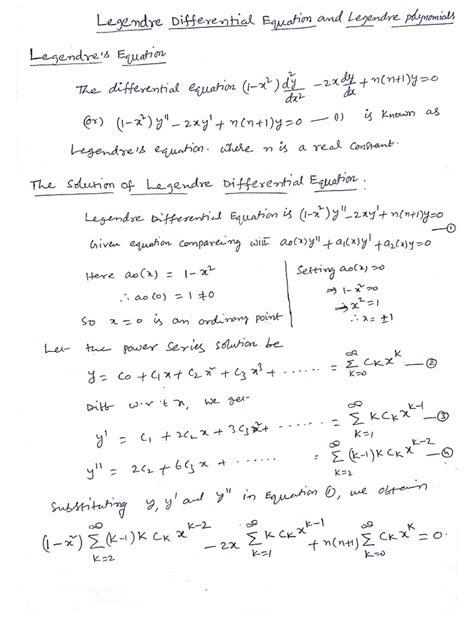 Legendre Differential Equation and Legendre polynomials
Legendre's Equation
The differential equation (1-x²) d²y/dx² - 2x dy/dx + n(n+1)y=0
(or) (1-x²)y'' - 2xy' + n(n+1)y=0 — (1) is known as
Legendre's equation. where n is a real constant.
The Solution of Legendre Differential Equation:
Legendre Differential Equation is (1-x²)y''-2xy'+n(n+1)y=0 — ①
Given equation compareing with a₀(x)y''+a₁(x)y'+a₂(x)y=0
Here a₀(x) = 1-x²
∴ a₀(0) = 1 ≠ 0
So x=0 is an ordinary point
Setting a₀(x)=0
⇒ 1-x²=0
→ x²=1
∴ x=±1
Let the power Series solution be
y = c₀ + c₁x + c₂x² + c₃x³ + ...... = ∑_{k=0}^{∞} c_k x^k — ②
Diff w.r.t x, we get
y' = c₁ + 2c₂x + 3c₃x² + ....... = ∑_{k=1}^{∞} k c_k x^{k-1} — ③
y'' = 2c₂ + 6c₃x + ....... = ∑_{k=2}^{∞} (k-1)k c_k x^{k-2} — ④
Substituting y, y' and y'' in Equation ①, we obtain
(1-x²) ∑_{k=2}^{∞} (k-1)k c_k x^{k-2} - 2x ∑_{k=1}^{∞} k c_k x^{k-1} + n(n+1) ∑_{k=0}^{∞} c_k x^k = 0.